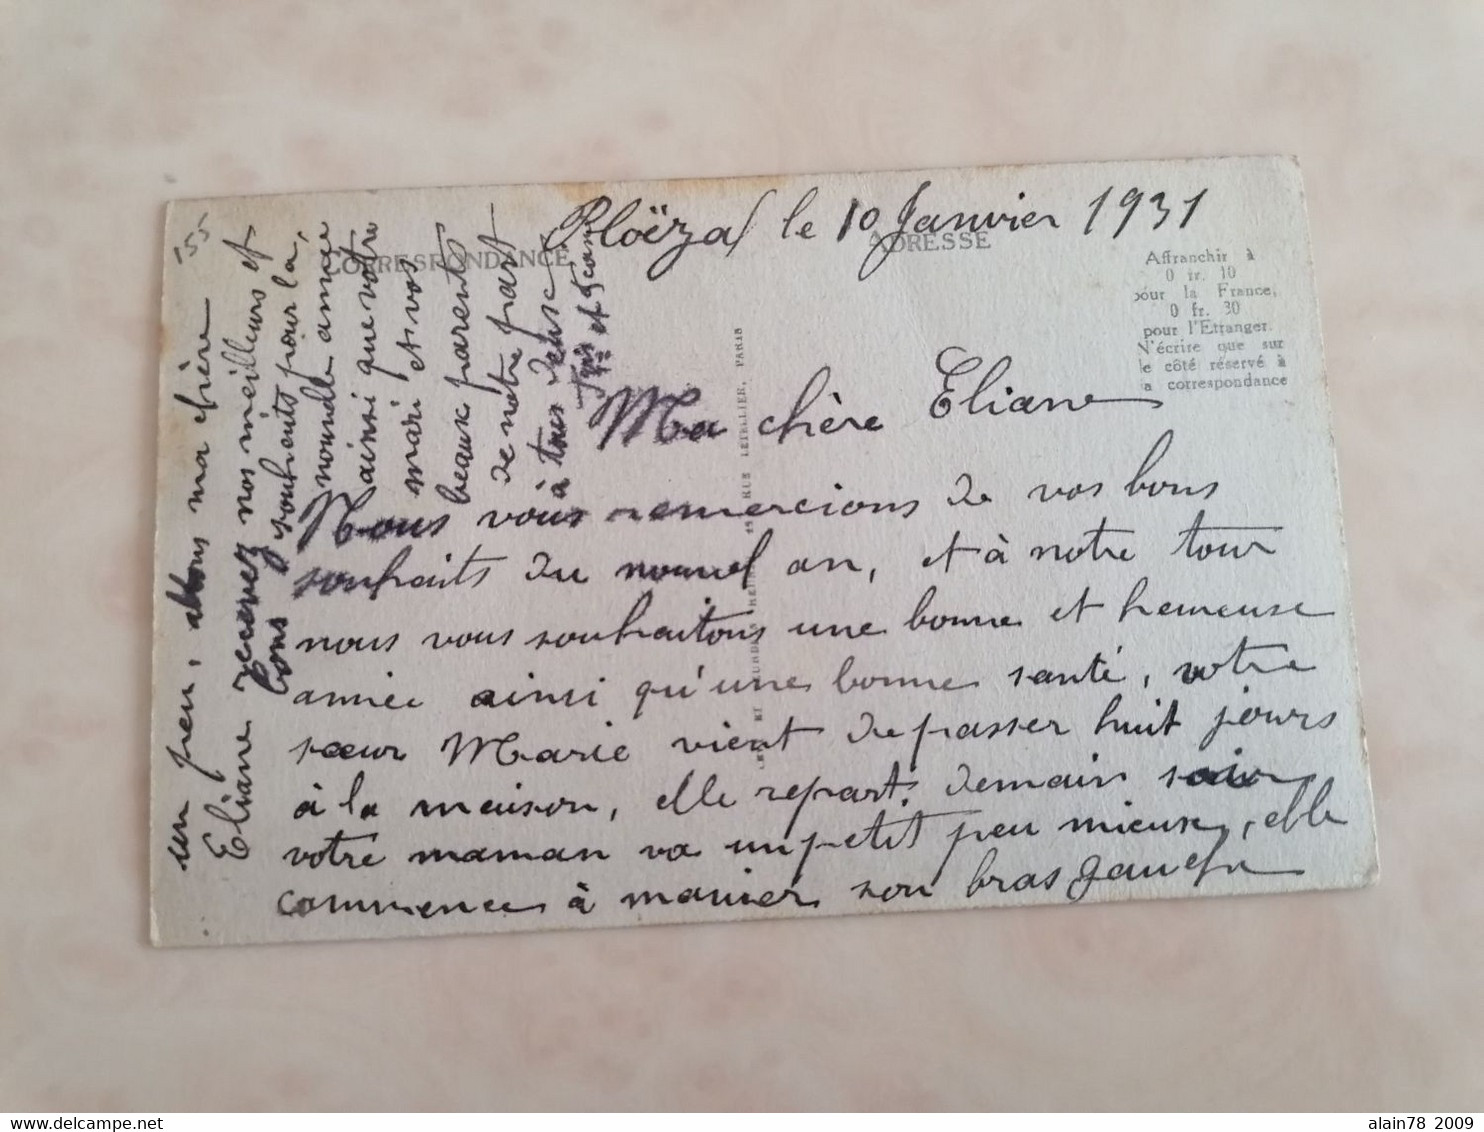 Ploëzal le 10 Janvier 1931
CORRESPONDANCE
ADRESSE
Affranchir à
0 fr. 10
pour la France,
0 fr. 30
pour l'Etranger.
N'écrire que sur
le côté réservé à
la correspondance
Ma chère Eliane
Nous vous remercions de vos bons
souhaits du nouvel an, et à notre tour
nous vous souhaitons une bonne et heureuse
année ainsi qu'une bonne santé, votre
sœur Marie vient de passer huit jours
à la maison, elle repart demain soir
votre maman va un petit peu mieux, elle
commence à manier son bras gauche
un peu, allons ma chère
Eliane recevez nos meilleurs et
bons souhaits pour la
nouvelle année
ainsi que votre
mari et vos
beaux parents
de notre part
à tous deux
et Jean
155
RUE LETELLIER, PARIS
alain78 2009